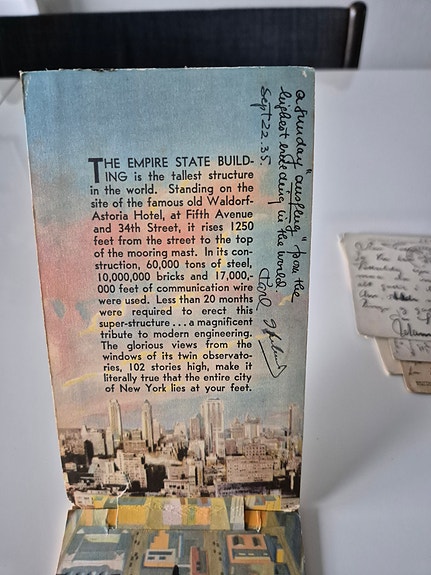 THE EMPIRE STATE BUILD-
ING is the tallest structure
in the world. Standing on the
site of the famous old Waldorf-
Astoria Hotel, at Fifth Avenue
and 34th Street, it rises 1250
feet from the street to the top
of the mooring mast. In its con-
struction, 60,000 tons of steel,
10,000,000 bricks and 17,000,-
000 feet of communication wire
were used. Less than 20 months
were required to erect this
super-structure . . . a magnificent
tribute to modern engineering.
The glorious views from the
windows of its twin observato-
ries, 102 stories high, make it
literally true that the entire city
of New York lies at your feet.
a Sunday "ausflug" from the
highest building in the world.
Sept 22. 35. Karl